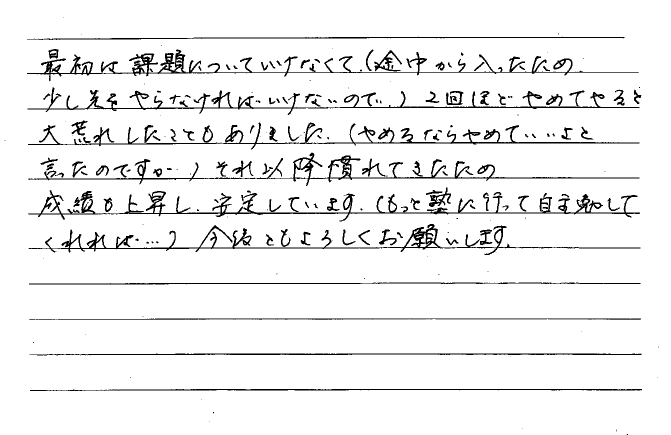 最初は課題についていけなくて、(途中から入ったため
少し先をやらなければいけないので、) 2回ほどやめてやると
大荒れしたこともありました。(やめるならやめていいよと
言ったのですが…) それ以降慣れてきたため
成績も上昇し、安定しています。(もっと塾に行って自主勉して
くれれば…) 今後ともよろしくお願いします。